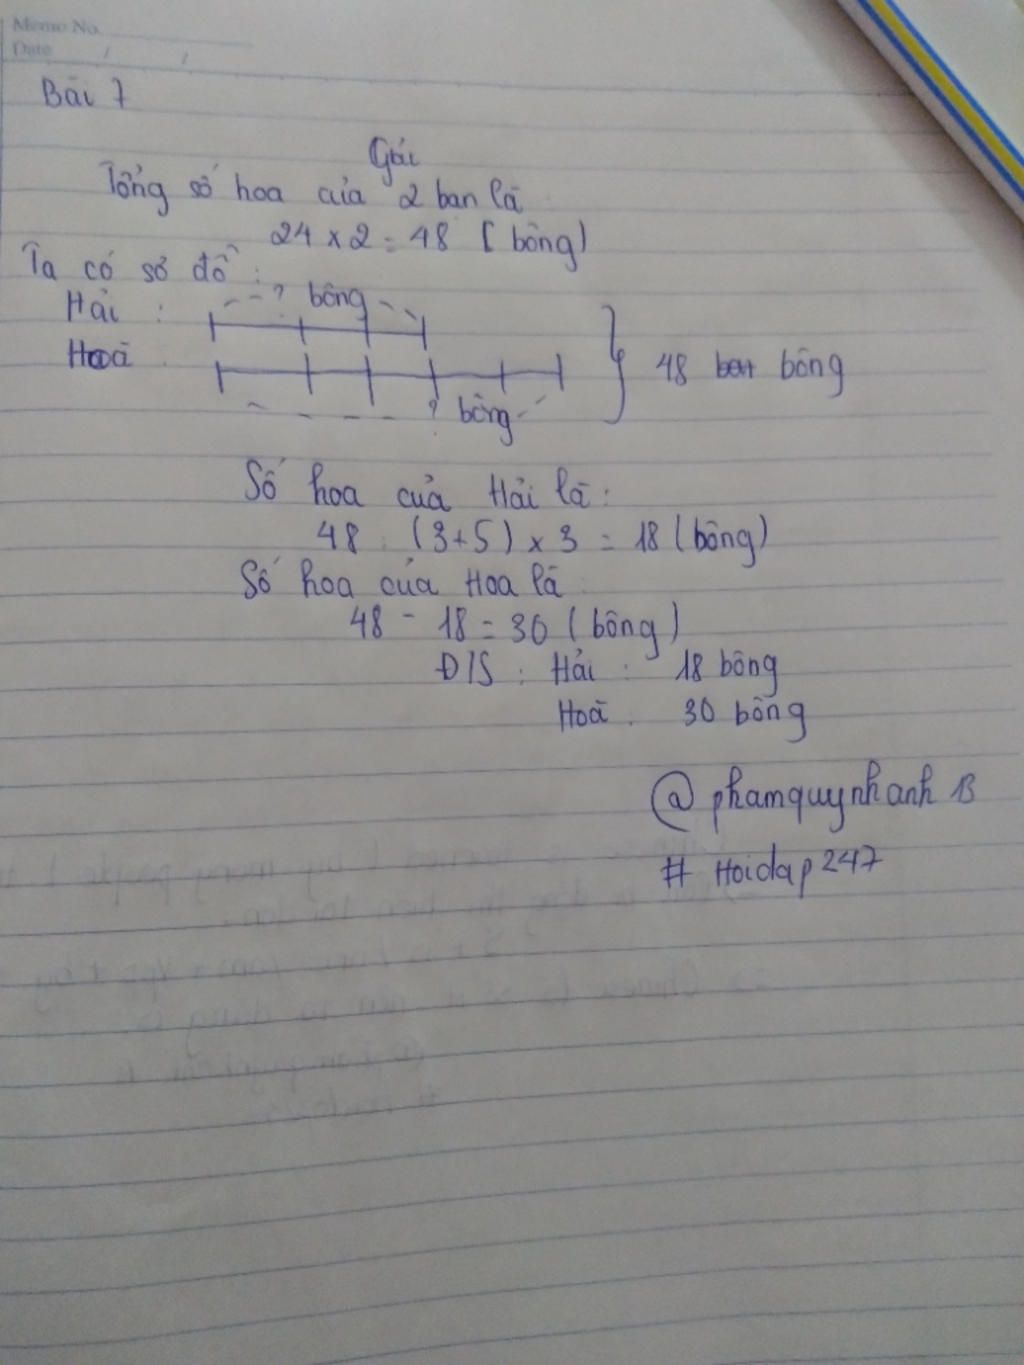 Memo No.
Date / /
Bài 7
Giải
Tổng số hoa của 2 bạn là
24 x 2 = 48 (bông)
Ta có sơ đồ :
? bông
Hải :
Hoà
48 bông
? bông
Số hoa của Hải là :
48 : (3+5) x 3 = 18 (bông)
Số hoa của Hoa là :
48 - 18 = 30 (bông)
Đ/S : Hải : 18 bông
Hoà : 30 bông
@ phamquynhanh 13
# Hoidap247